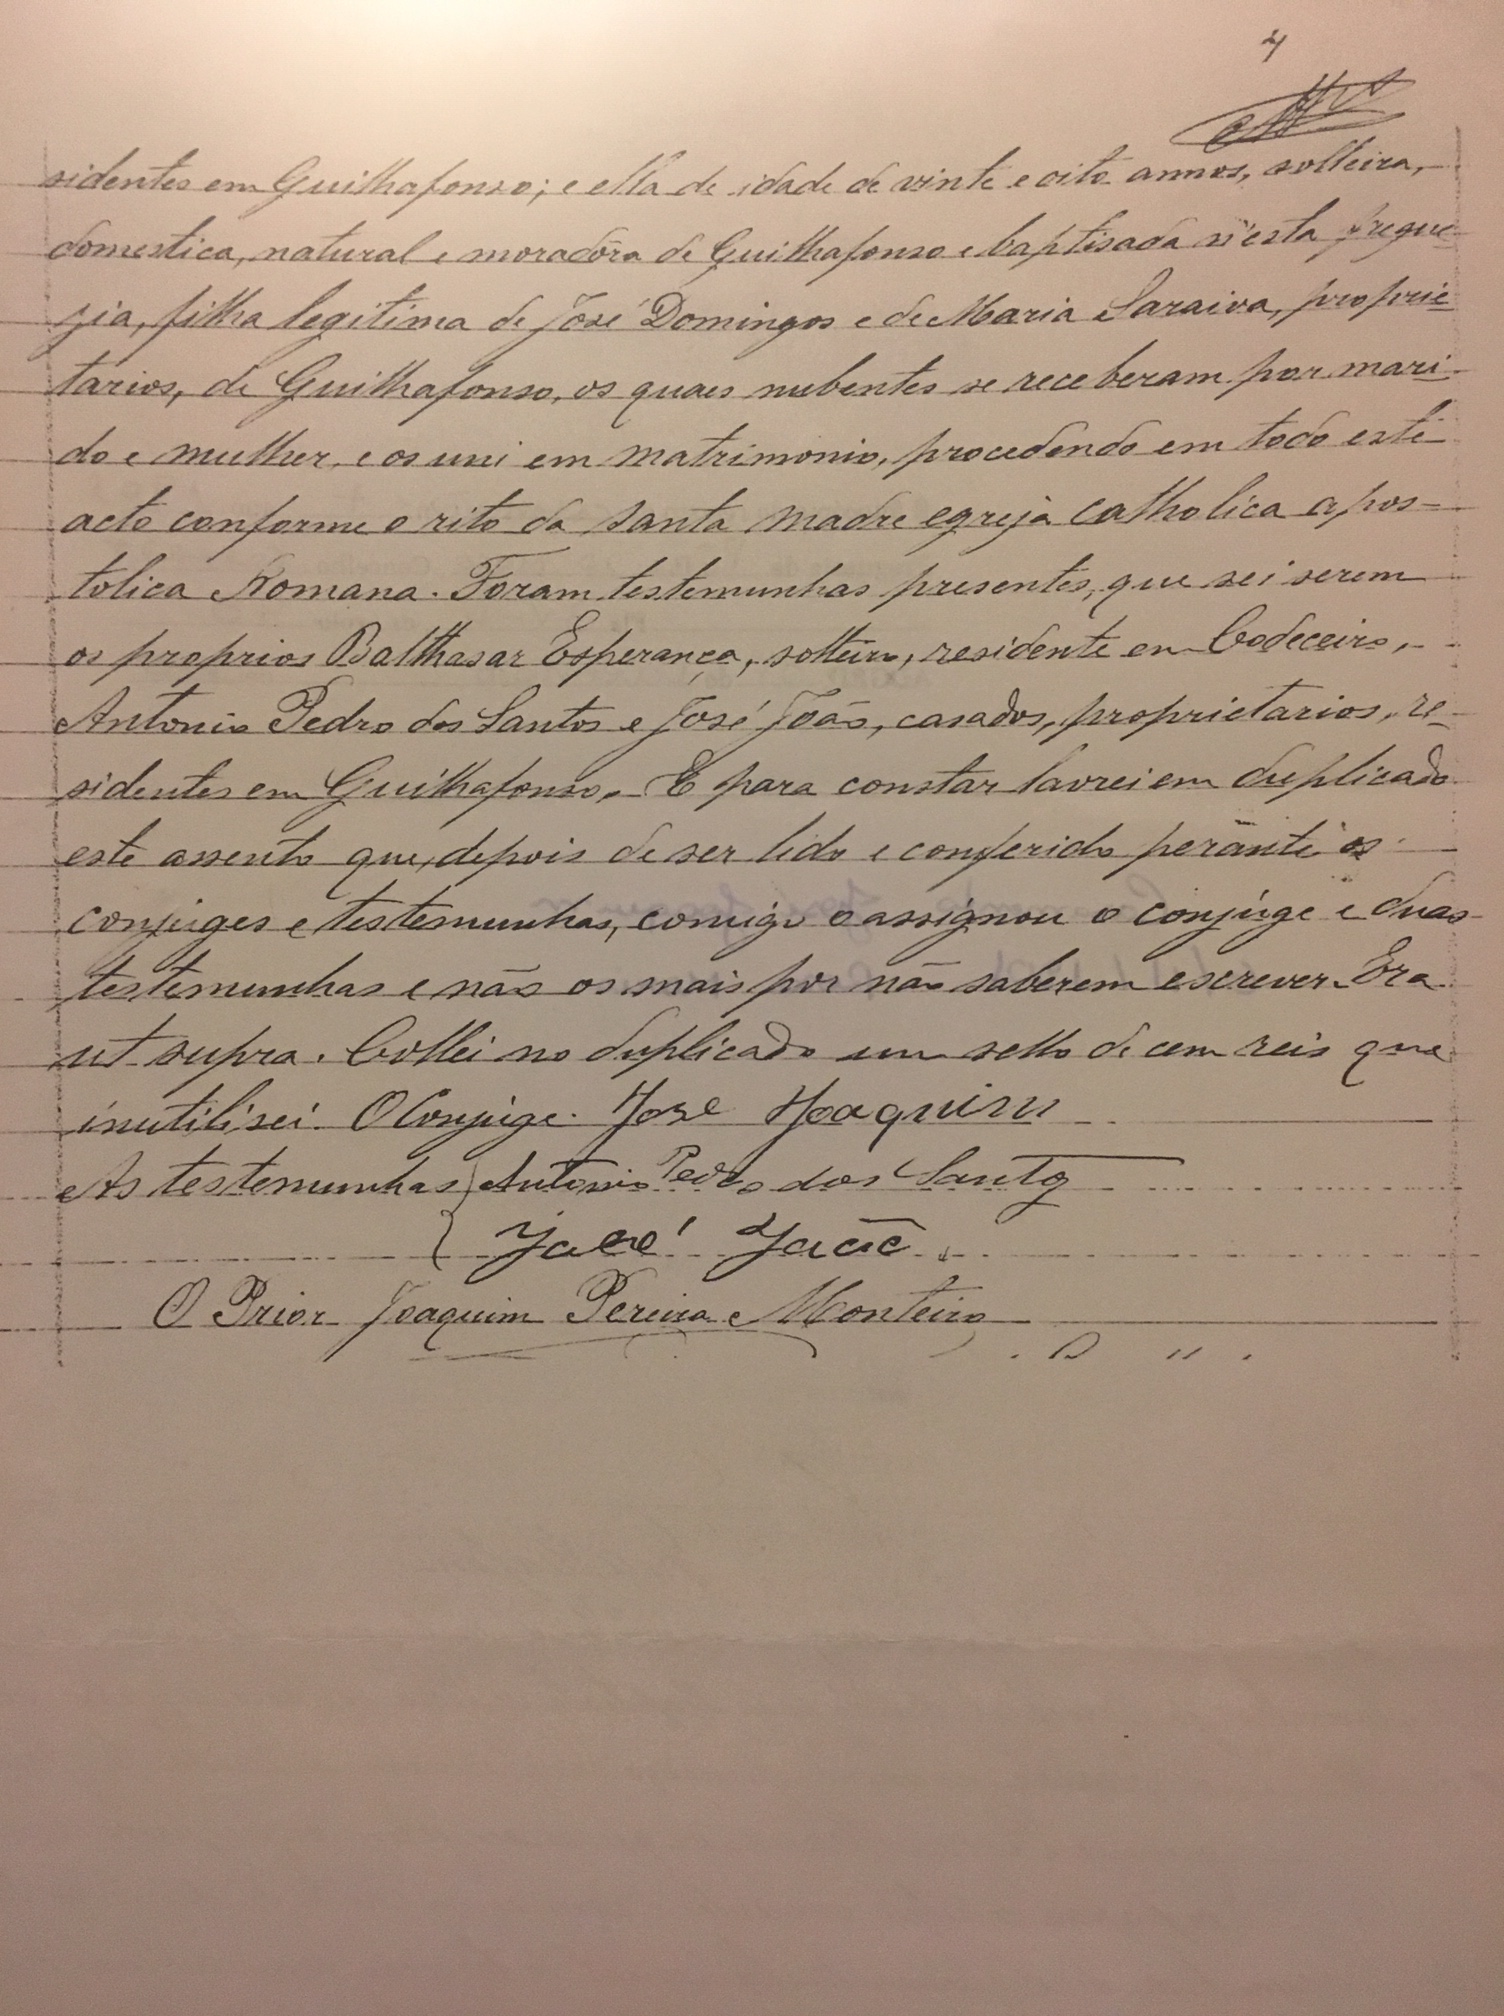 4
sidentes em Guilhafonso; e ella de idade de vinte e oito annos, solteira,
domestica, natural e moradôra de Guilhafonso e baptisada n'esta fregue-
zia, filha legitima de José Domingos e de Maria Saraiva, proprie-
tarios, de Guilhafonso, os quaes nubentes se receberam por mari-
do e mulher, e os uni em matrimonio, procedendo em todo este
acto conforme o rito da santa madre egreja catholica apos-
tolica Romana. Foram testemunhas presentes, que sei serem
os proprios Balthasar Esperança, solteiro, residente em Codeceiro,
Antonio Pedro dos Santos e José João, casados, proprietarios, re-
sidentes em Guilhafonso. E para constar lavrei em duplicado
este assento que, depois de ser lido e conferido perante os
conjuges e testemunhas, comigo o assignou o conjuge e duas
testemunhas e não os mais por não saberem escrever. Era
ut supra. Collei no duplicado um sello de cem reis que
inutilisei. O Conjuge. José Joaquim
As testemunhas } Antonio Pedro dos Santos
{ José João
O Prior Joaquim Pereira Monteiro